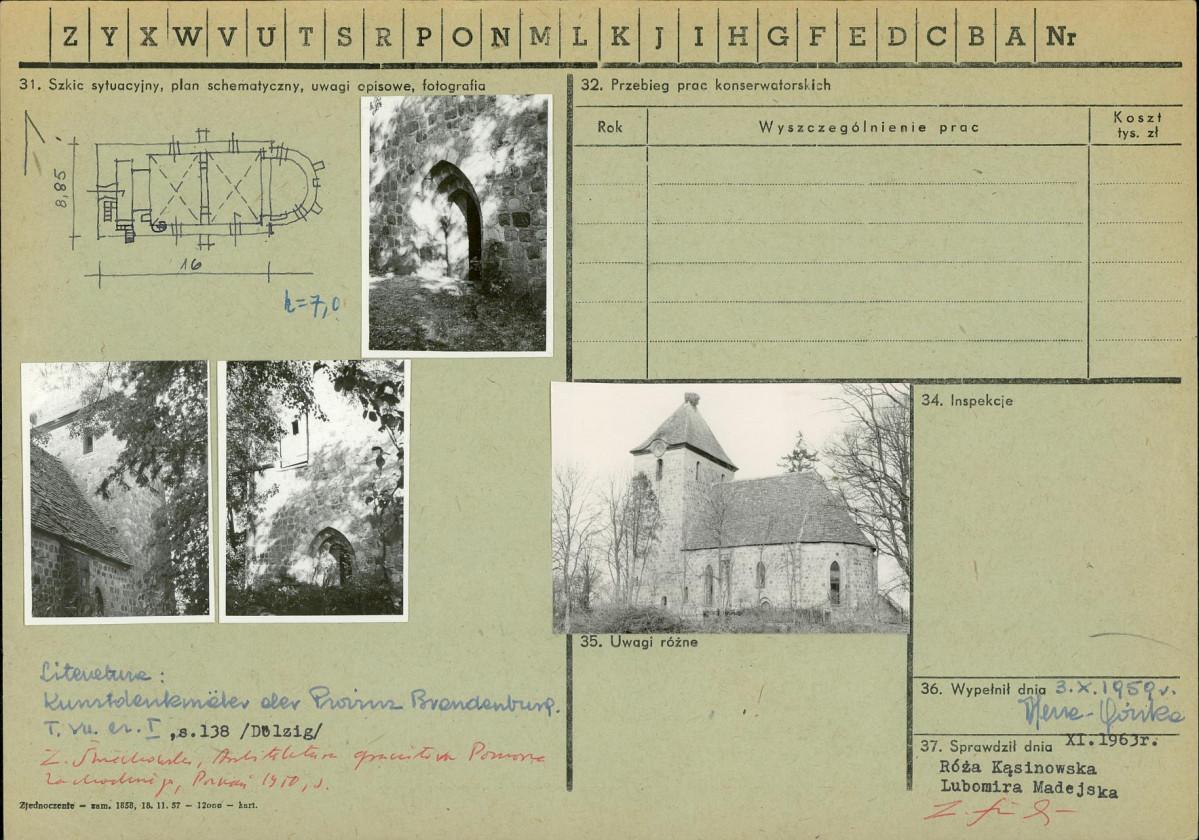 Z Y X W V U T S R P O N M L K J I H G F E D C B A Nr
31. Szkic sytuacyjny, plan schematyczny, uwagi opisowe, fotografia
8,85
16
h=7,0
32. Przebieg prac konserwatorskich
Rok Wyszczególnienie prac Koszt
tys. zł
34. Inspekcje
35. Uwagi różne
Literatura:
Kunstdenkmäler der Provinz Brandenburg.
T. VII. cz. I, s.138 /Dölzig/
Architektura granitowa Pomorza
Zachodniego, Poznań 1950, s.
Zjednoczenie — zam. 1858, 18. 11. 57 — 12000 — kart.
36. Wypełnił dnia 3.X.1959r.
37. Sprawdził dnia XI.1963r.
Róża Kąsinowska
Lubomira Madejska